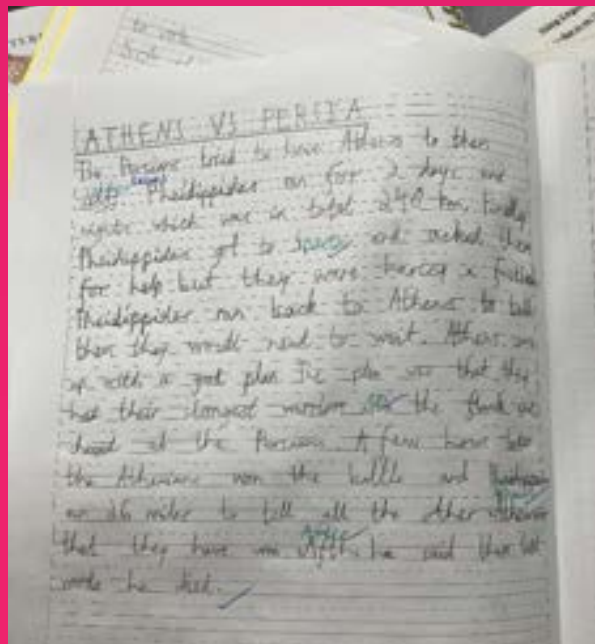 ATHENS VS PERSIA
The Persians tried to have Athens to them
Pheidippides ran for 2 days and
nights which was in total 240 km. Finally
Pheidippides got to Sparta and asked them
for help but they were having a festival
Pheidippides ran back to Athens to tell
them they would need to wait. Athens
up with a good plan The plan was that they
had their strongest warriors the flank
head of the Persians. A few hours later
the Athenians won the battle and Pheidippides
ran 26 miles to tell all the other Athenians
that they have won After he said them last
words he died.